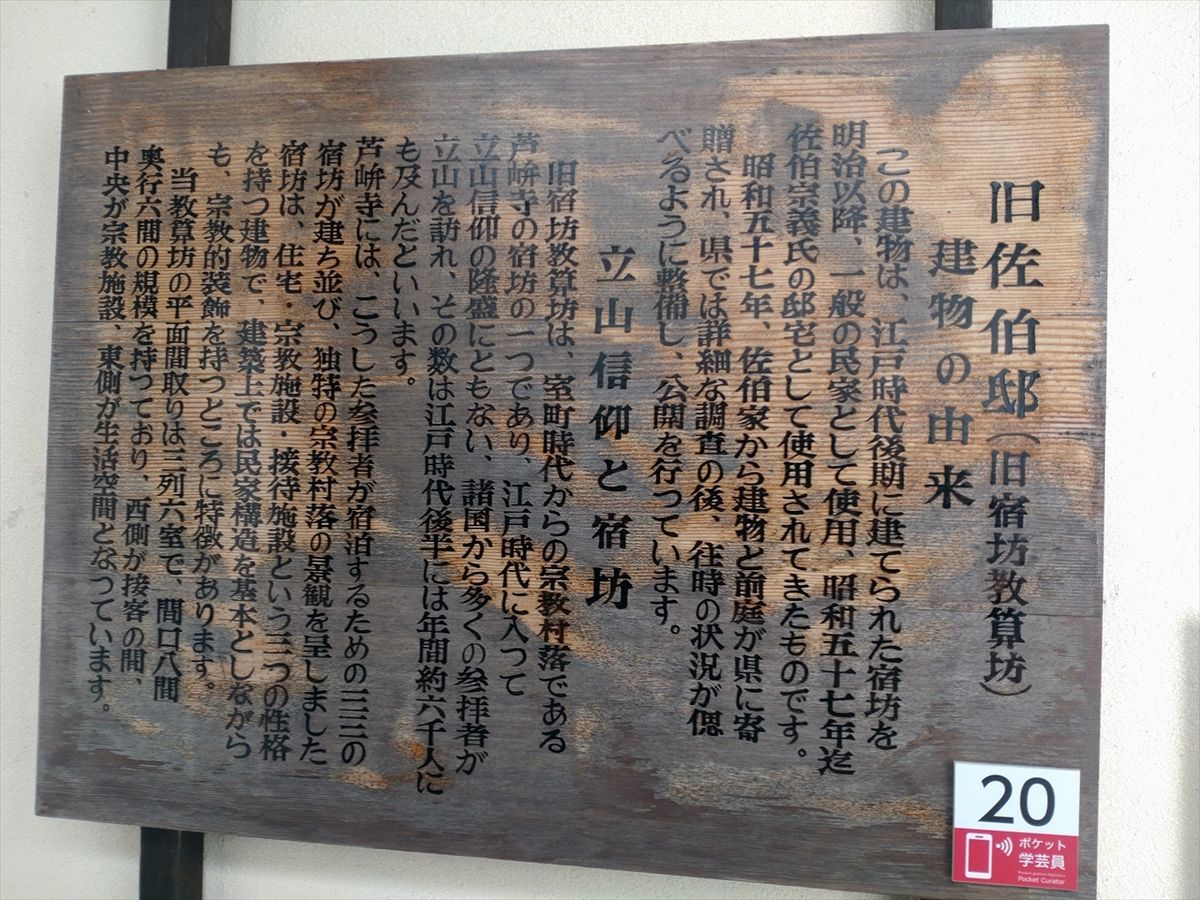 旧佐伯邸（旧宿坊教算坊）
建物の由来
この建物は、江戸時代後期に建てられた宿坊を
明治以降、一般の民家として使用、昭和五十七年迄
佐伯宗義氏の邸宅として使用されてきたものです。
昭和五十七年、佐伯家から建物と前庭が県に寄
贈され、県では詳細な調査の後、往時の状況が偲
べるように整備し、公開を行っています。
立山信仰と宿坊
旧宿坊教算坊は、室町時代からの宗教村落である
芦峅寺の宿坊の一つであり、江戸時代に入って
立山信仰の隆盛にともない、諸国から多くの参拝者が
立山を訪れ、その数は江戸時代後半には年間約六千人に
も及んだといいます。
芦峅寺には、こうした参拝者が宿泊するための三三の
宿坊が建ち並び、独特の宗教村落の景観を呈しました
宿坊は、住宅・宗教施設・接待施設という三つの性格
を持つ建物で、建築上では民家構造を基本としながら
も、宗教的装飾を持つところに特徴があります。
当教算坊の平面間取りは三列六室で、間口八間
奥行六間の規模を持っており、西側が接客の間、
中央が宗教施設、東側が生活空間となっています。
20
ポケット
学芸員
Pocket Curator